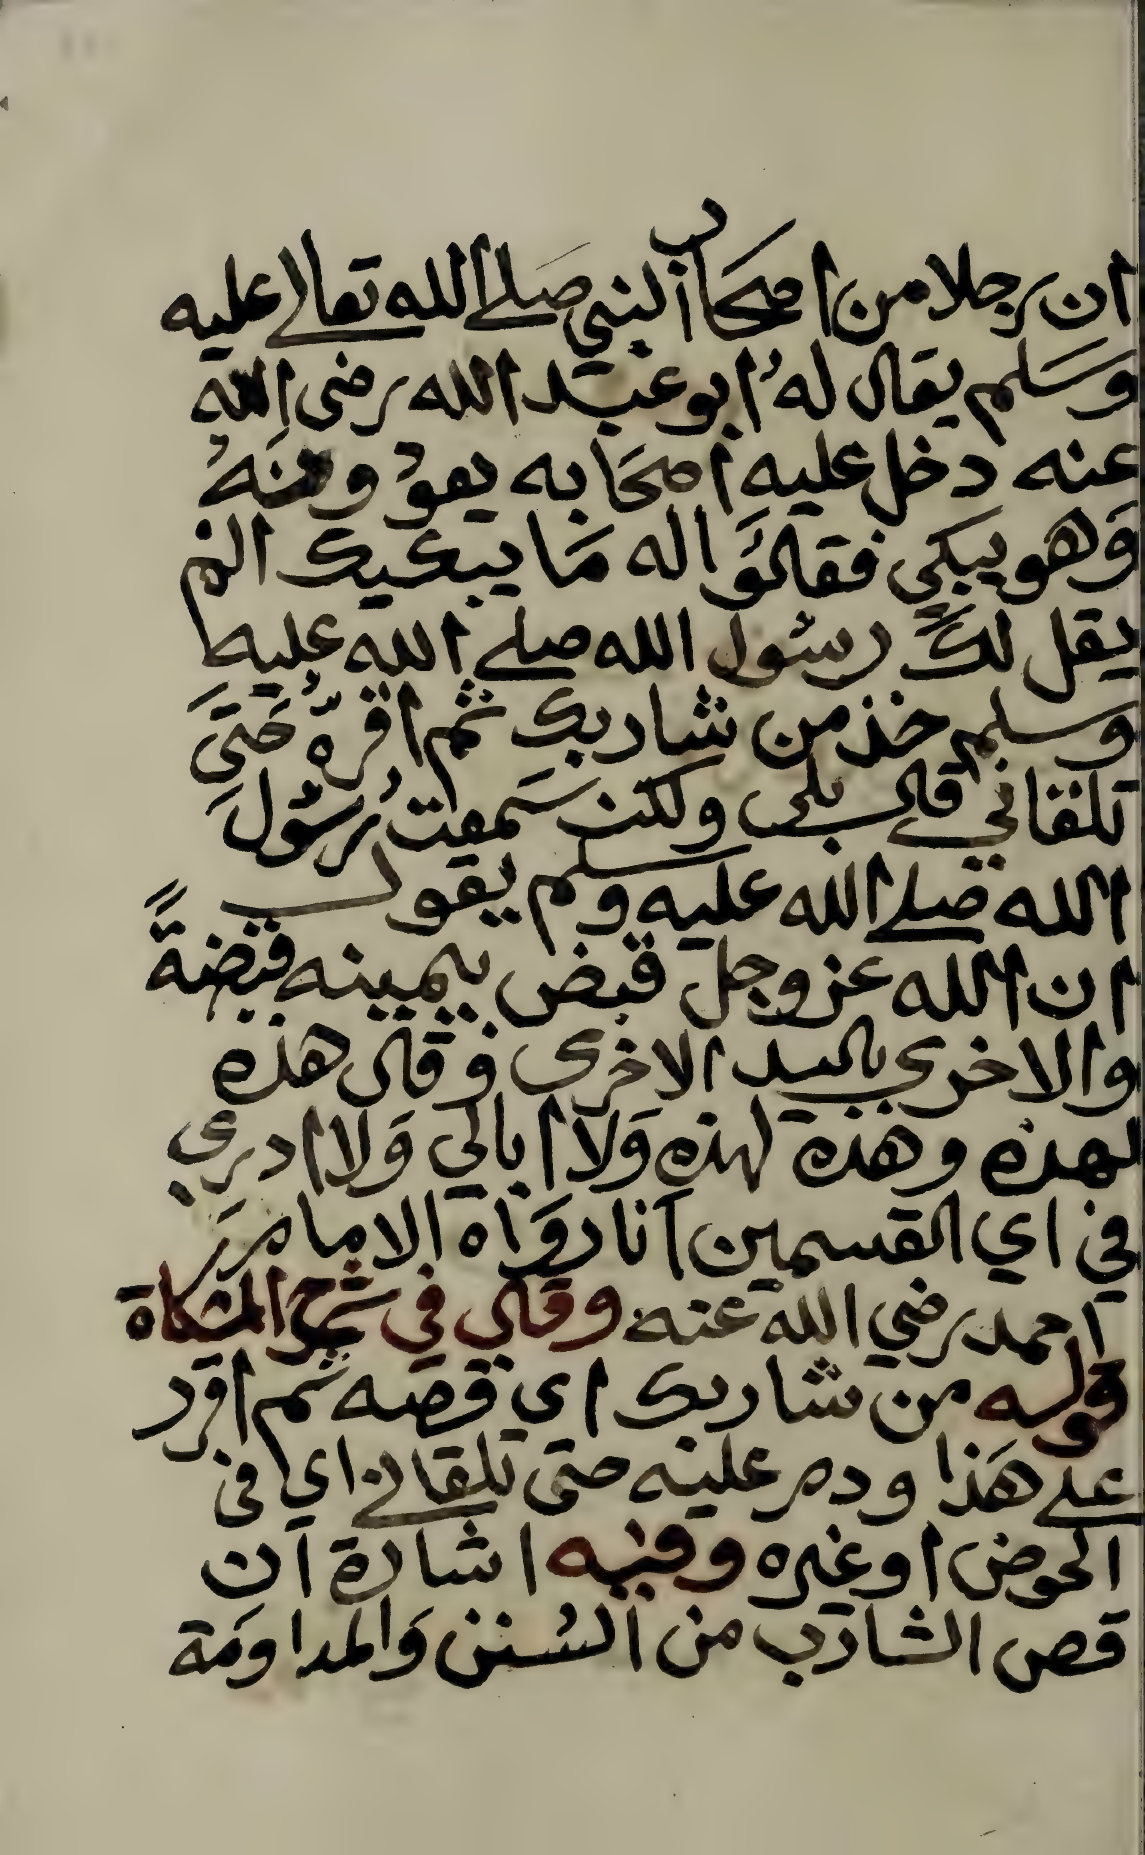 ان رجلا من اصحاب النبي صلى الله تعالى عليه
وسلم يقال له ابو عبد الله رضى الله
عنه دخل عليه اصحابه يعودونه
وهو يبكي فقالوا له ما يبكيك الم
يقل لك رسول الله صلى الله عليه
وسلم خذ من شاربك ثم اقره حتى
تلقاني قال بلى ولكن سمعت رسول
الله صلى الله عليه وسلم يقول
ان الله عز وجل قبض بيمينه قبضة
والاخرى باليد الاخرى وقال هذه
لهذه وهذه لهذه ولا ابالي ولا ادري
في اي القسمين انا رواه الامام
احمد رضي الله عنه وقال في شرح المشكاة
قوله من شاربك اي قصه ثم اقره
على هذا ودم عليه حتى تلقاني اي في
الحوض او غيره وفيه اشارة ان
قص الشارب من السنن والمداومة